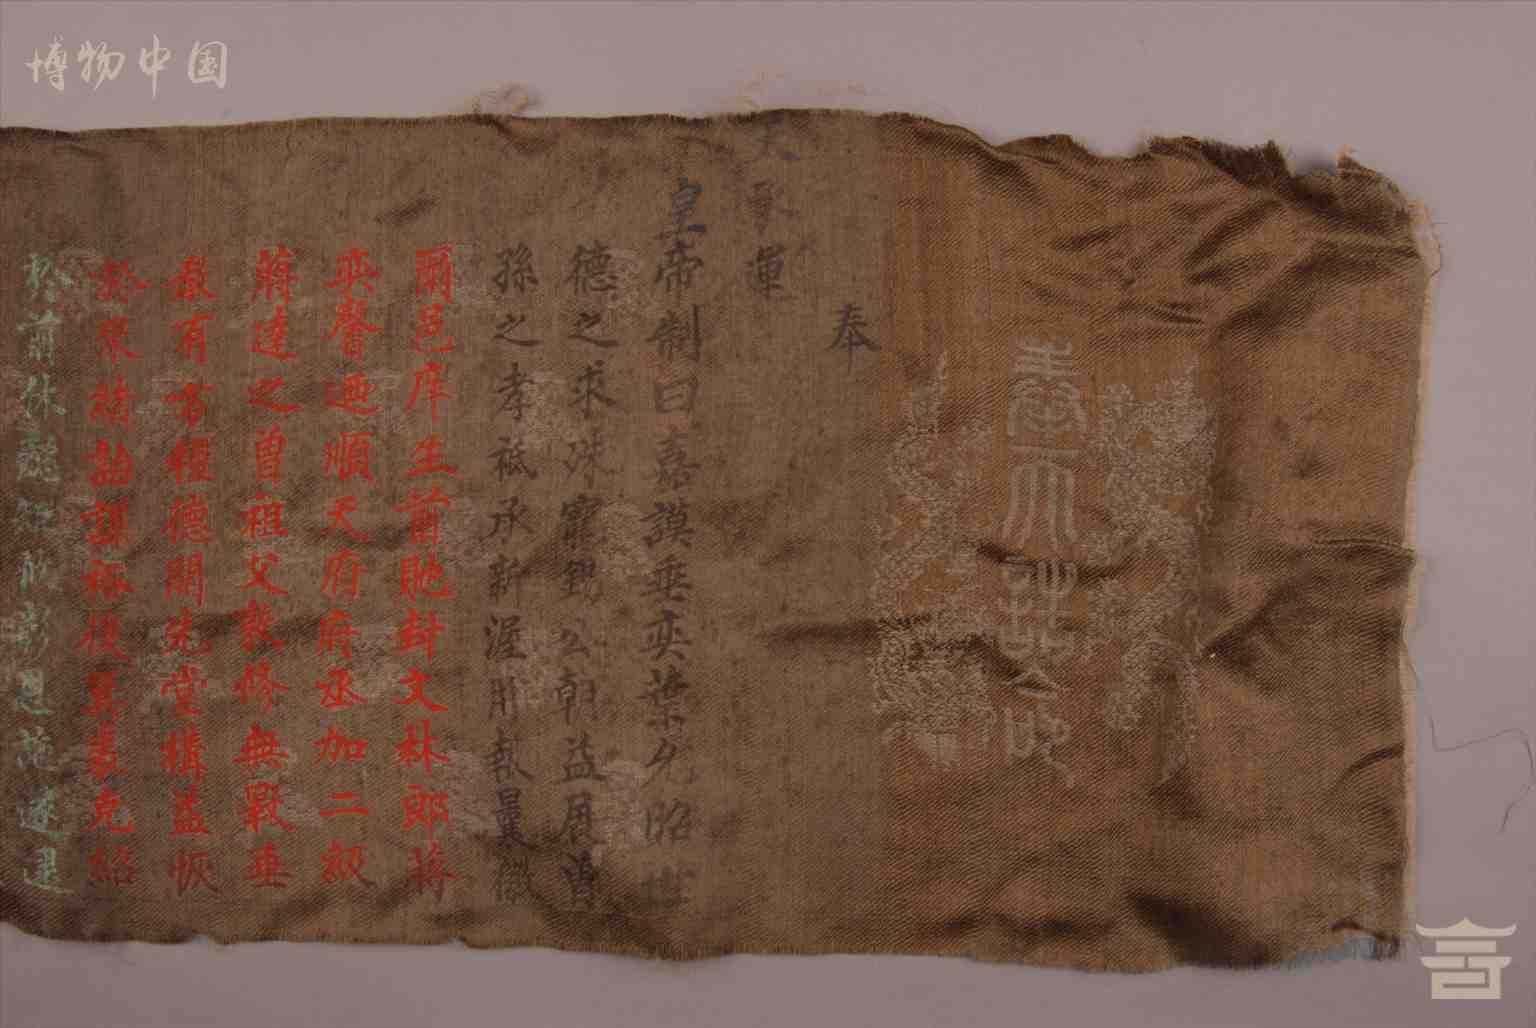 博物中国
奉天誥命
奉
天承運
皇帝制曰嘉謨垂奕葉允昭世
德之求殊寵錫公朝益展曾
孫之孝祇承新渥用報曩徽
爾邑庠生前貤封文林郎蔣
奕馨迺順天府府丞加二級
蔣達之曾祖父敦修無斁垂
教有方種德開先堂構益恢
於來緒詒謀裕後箕裘克紹
於前休懿 恩施遂逮